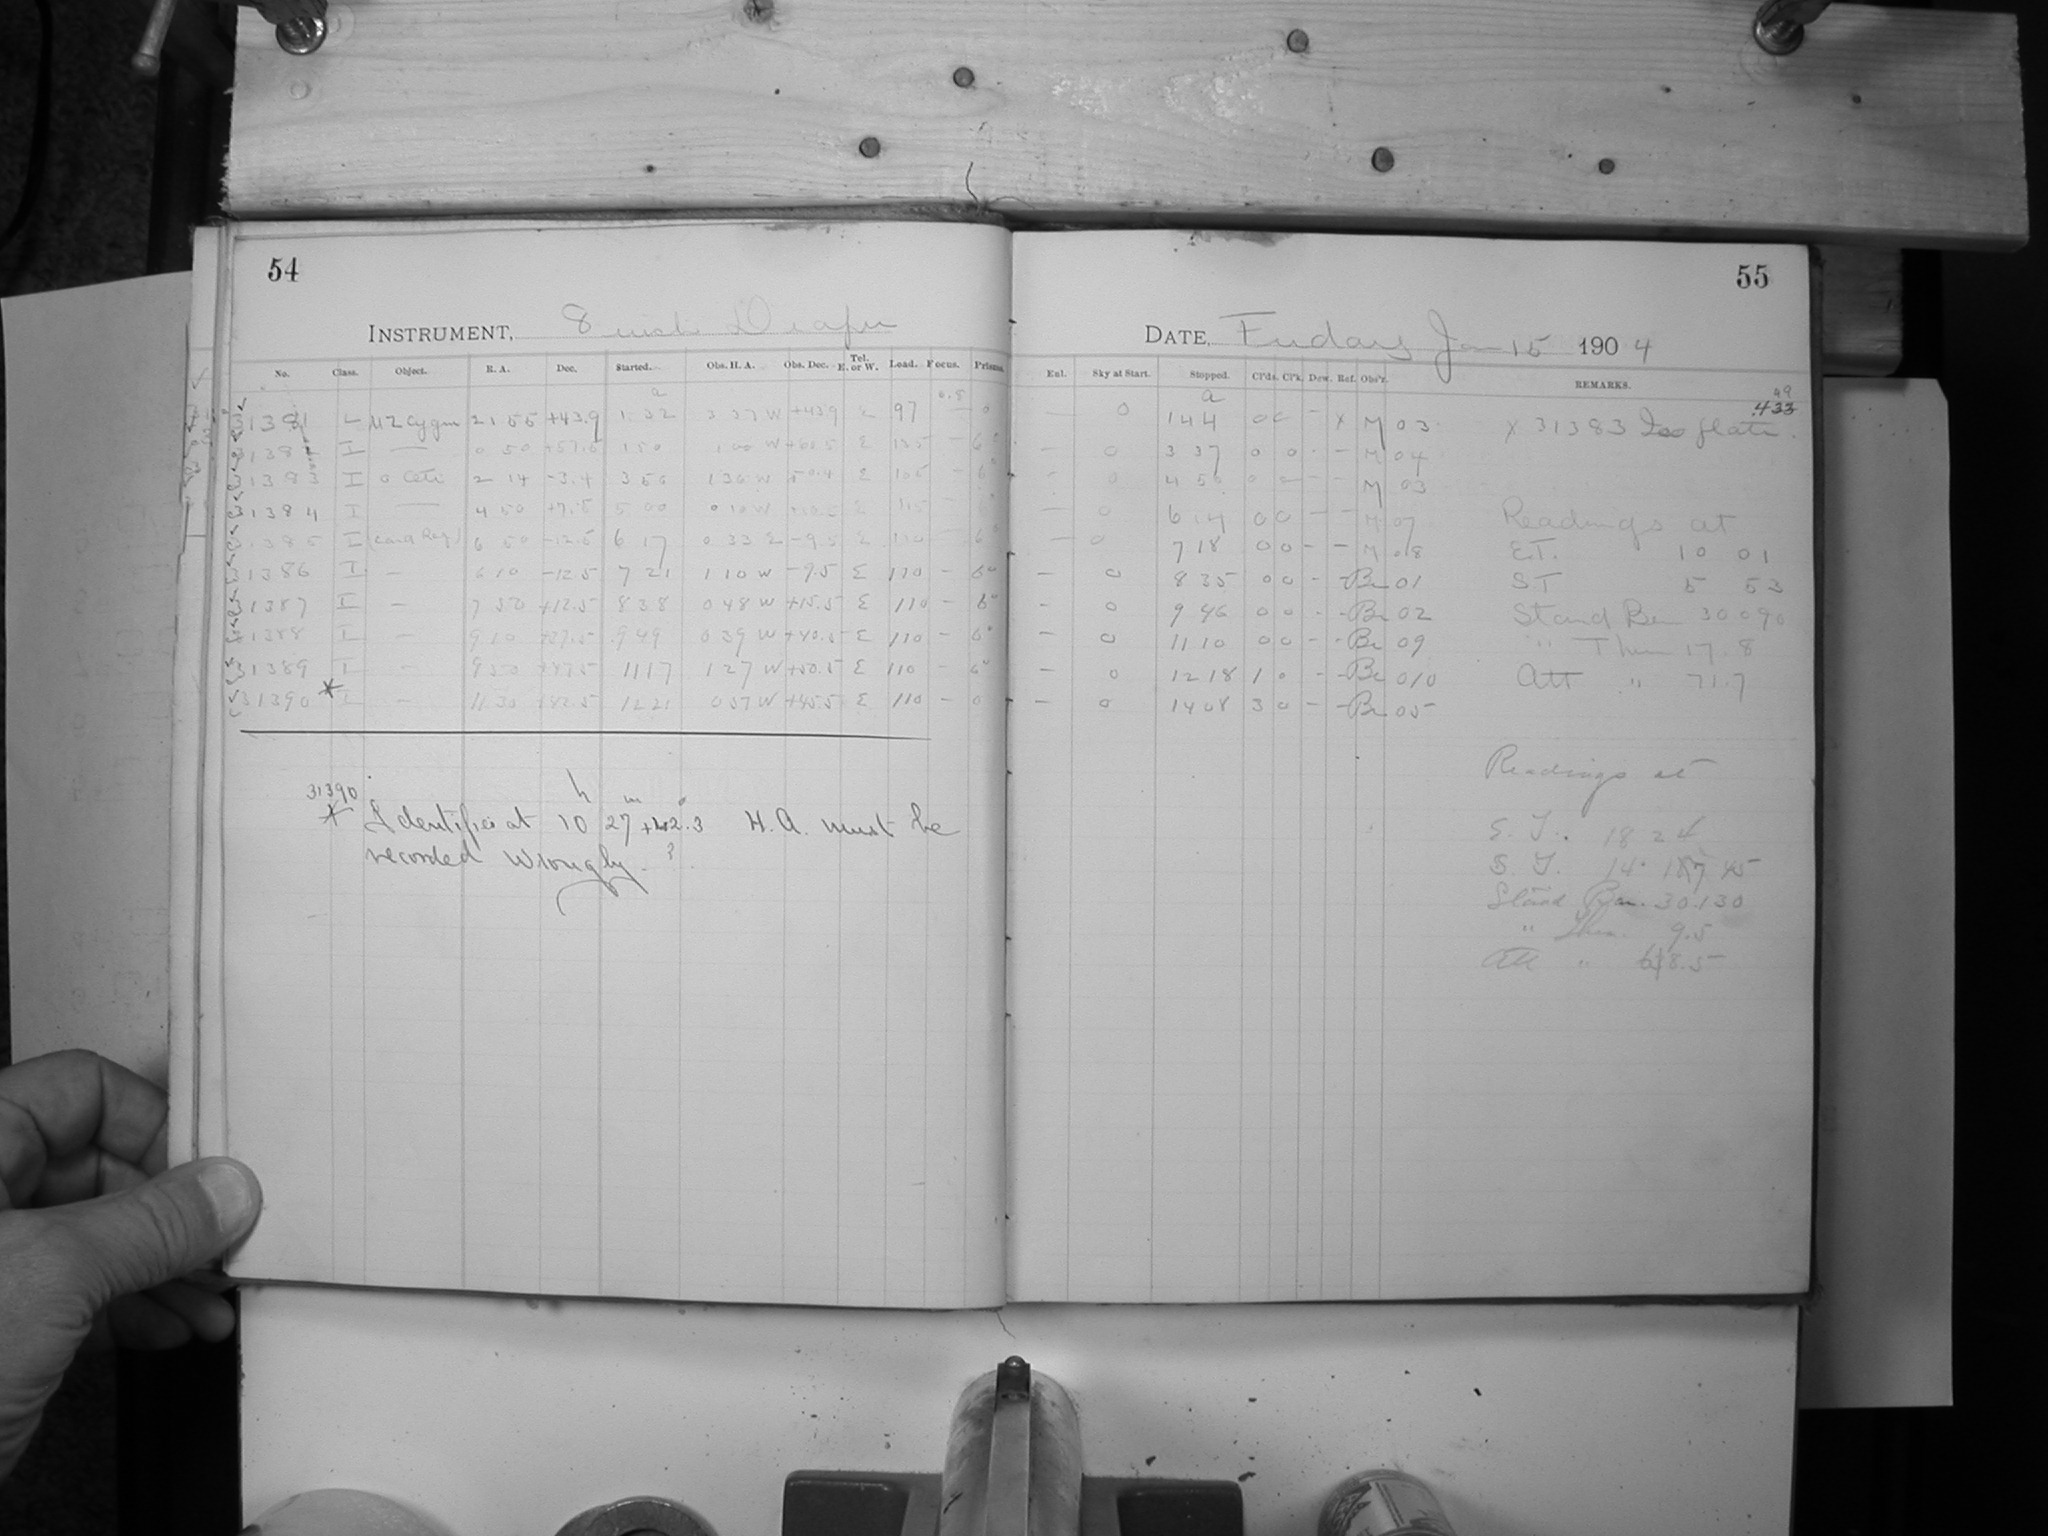 54
INSTRUMENT, 8 inch Draper
No. Class. Object. R. A. Dec. Started. Obs. H. A. Obs. Dec. Tel. E. or W. Load. Focus. Prisms.
31381 L UZ Cygni 21 55 +43.9 1 32 3 37 W +43.9 E 97 — 0
I — 0 50 +57.5 1 50 1 00 W +60.5 E 135 — 6°
31383 I o Ceti 2 14 -3.4 3 50 1 36 W E 105 — 6°
31384 I — 4 50 +7.5 5 00 0 10 W +10.5 E 115
31385 I 6 50 -12.5 6 17 0 33 E -9.5 E 110 — 6°
31386 I — 6 10 -12.5 7 21 1 10 W -9.5 E 110 — 6°
31387 I — 7 50 +12.5 8 38 0 48 W +15.5 E 110 — 6°
31388 I — 9 10 +37.5 9 49 0 39 W +40.5 E 110 — 6°
31389 I — 9 50 +47.5 11 17 1 27 W +50.5 E 110 — 6°
31390 * I — 11 30 +42.5 12 21 0 57 W +45.5 E 110 — 0
31390
* Identifies at 10h 27m +42°.3 H.A. must be
recorded wrongly. ?
55
DATE, Friday Jan 15 1904
Enl. Sky at Start. Stopped. Cl'ds. Cl'k. Dew. Ref. Obs'r. REMARKS.
— 0 1 44 0 0 – x M 03 x 31383 Iso plate.
— 0 3 37 0 0 - – M 04
— 0 4 50 0 0 – – M 03
— 0 6 14 0 0 – – M 07 Readings at
— 0 7 18 0 0 – – M 08 E.T. 10 01
— 0 8 35 0 0 - – Be 01 S T 5 53
— 0 9 46 0 0 - – Be 02 Stand Bar 30.090
— 0 11 10 0 0 - – Be 09 " Ther 17.8
— 0 12 18 1 0 - – Be 010 Att " 71.7
— 0 14 08 3 0 – – Be 05
Readings at
E. T. 18 24
S. T. 14
Stand Bar. 30.130
" Ther. 9.5
Att " 68.5